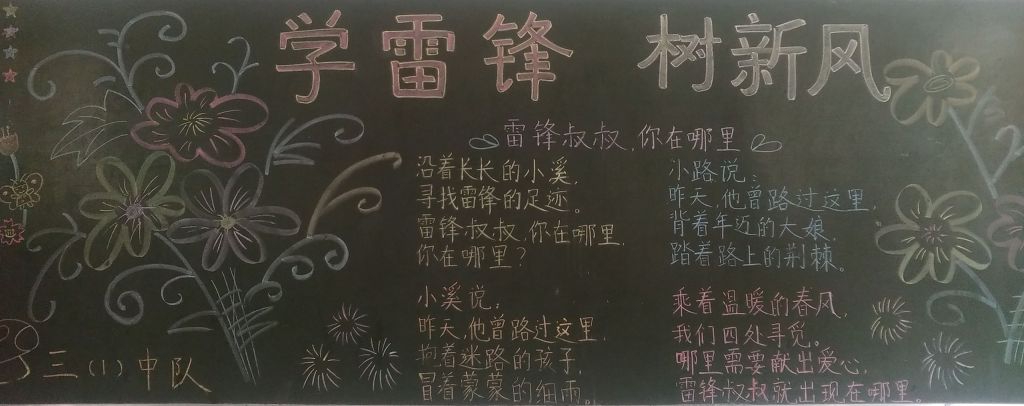 学雷锋 树新风
雷锋叔叔,你在哪里
沿着长长的小溪,
寻找雷锋的足迹。
雷锋叔叔,你在哪里,
你在哪里?
小溪说:
昨天,他曾路过这里,
抱着迷路的孩子,
冒着蒙蒙的细雨。
小路说:
昨天,他曾路过这里,
背着年迈的大娘,
踏着路上的荆棘。
乘着温暖的春风,
我们四处寻觅。
哪里需要献出爱心,
雷锋叔叔就出现在哪里。
三(1)中队